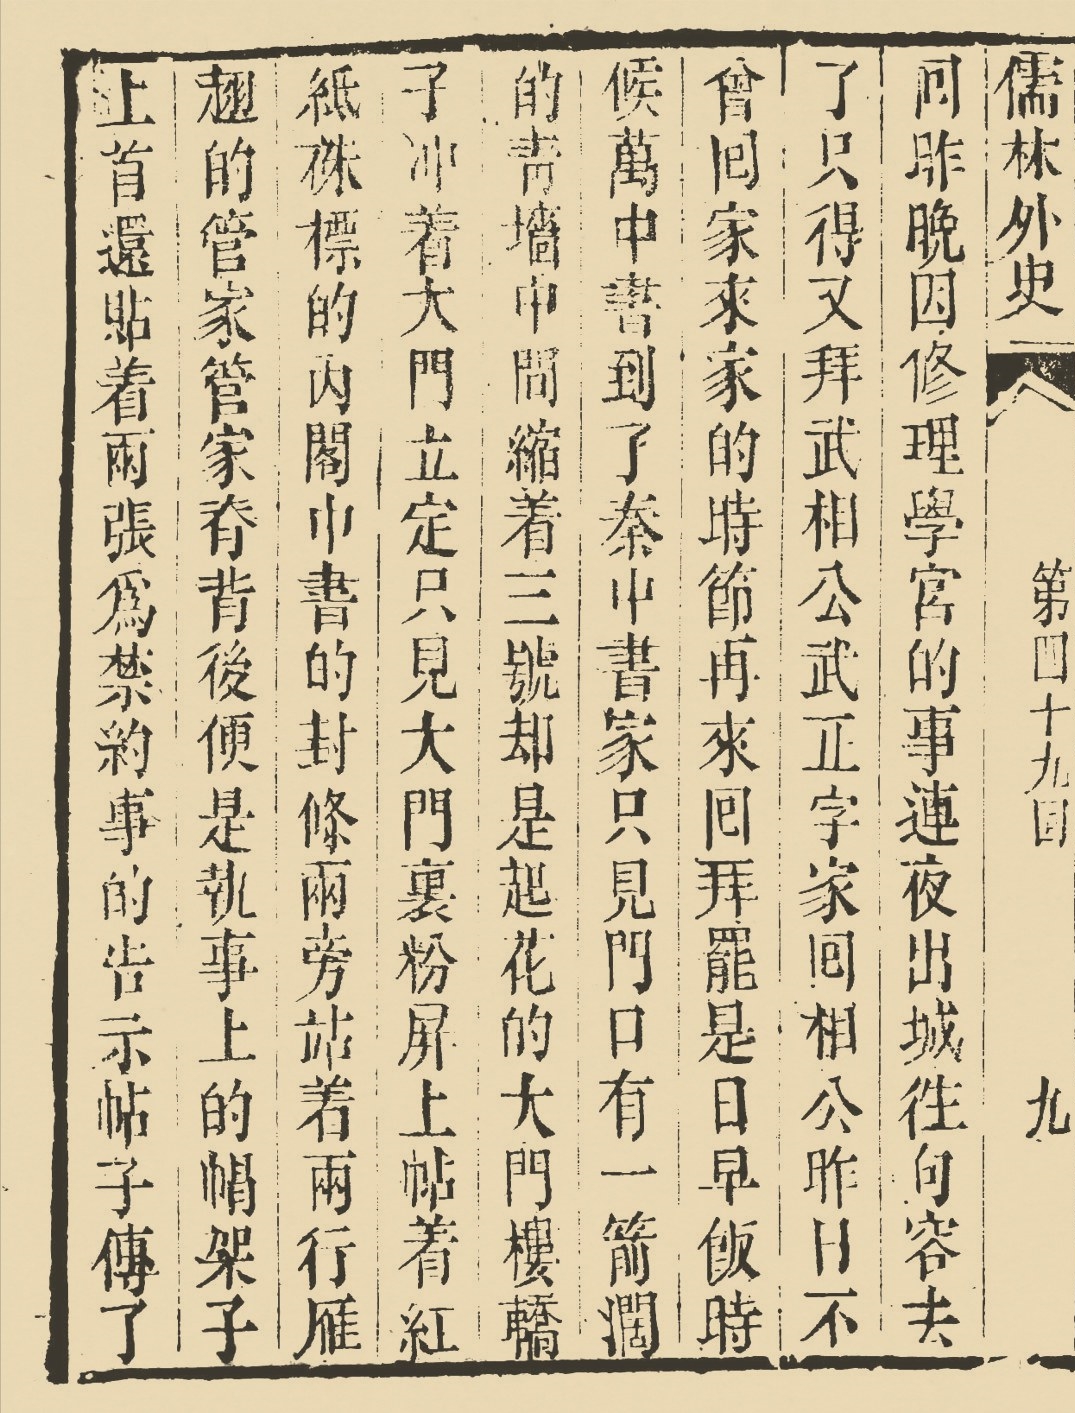 儒林外史 第四十九回 九
回昨晚因修理學宮的事連夜出城徃句容去
了只得又拜武相公武正字家回相公昨日不
曾回家來家的時節再來回拜罷是日早飯時
候萬中書到了秦中書家只見門口有一箭濶
的青墻中間縮着三號却是起花的大門樓轎
子冲着大門立定只見大門裏粉屏上帖着紅
紙硃標的內閣中書的封條兩旁站着兩行雁
翅的管家管家脊背後便是執事上的帽架子
上首還貼着兩張爲禁約事的告示帖子傳了